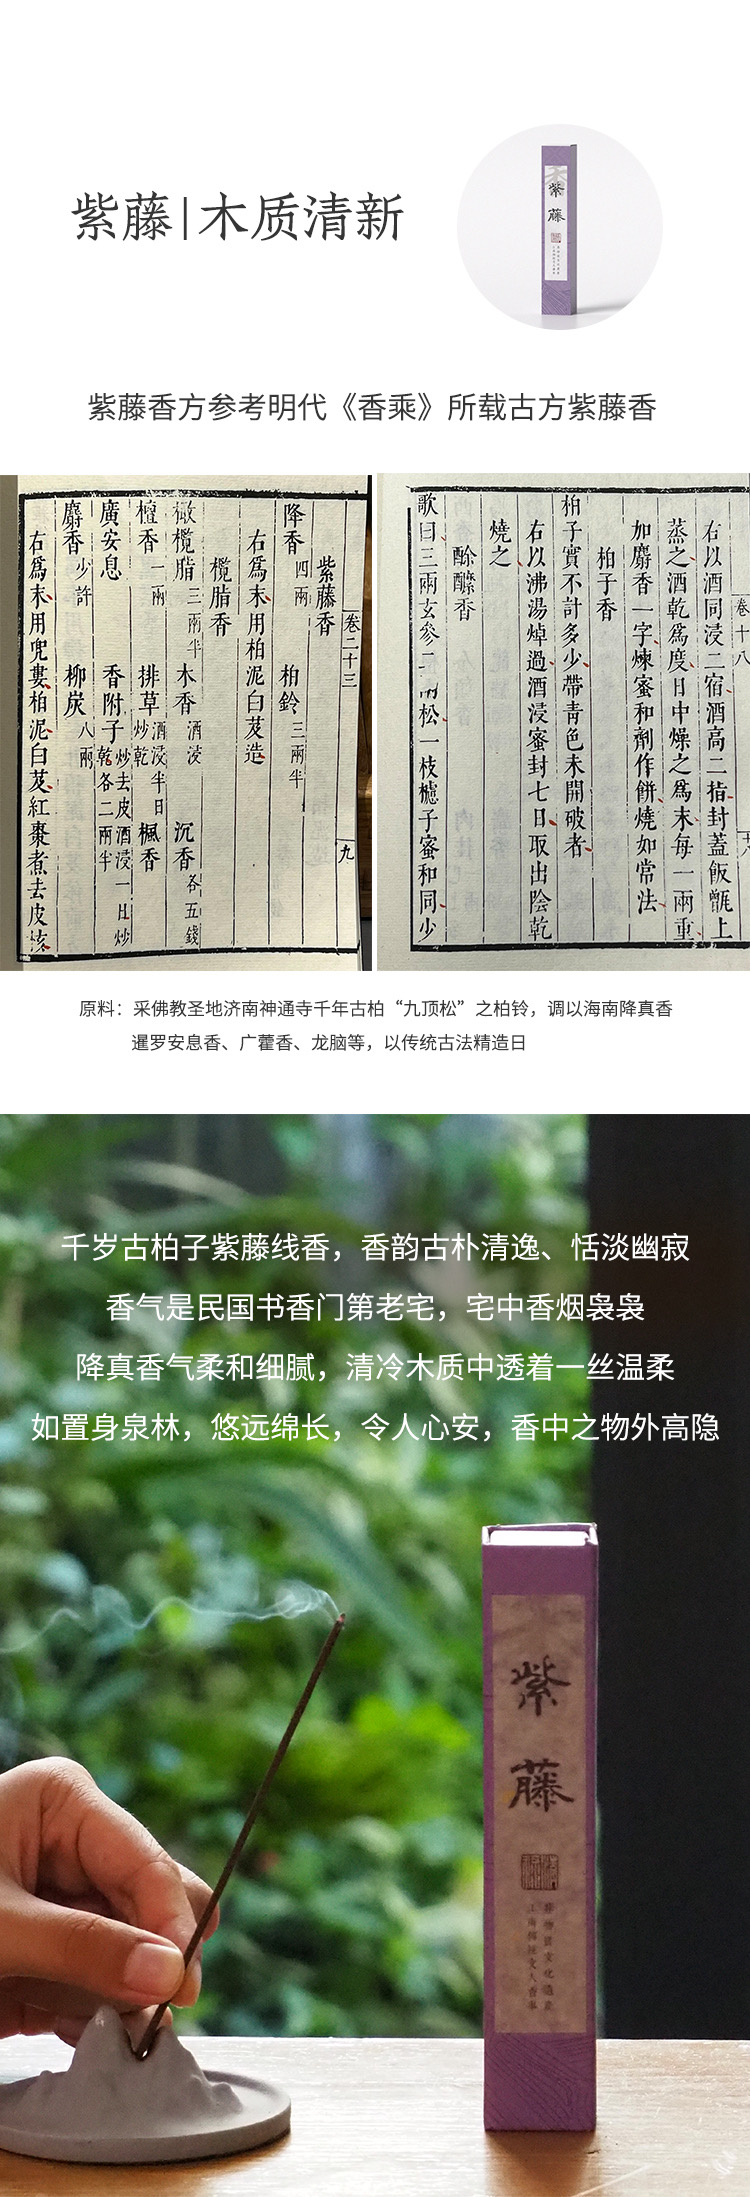 紫藤|木质清新
紫
藤
紫藤香方参考明代《香乘》所载古方紫藤香
卷二十三
九
紫藤香
降香四兩 柏鈴三兩半
右爲末用柏泥白芨造
欖脂香
橄欖脂三兩半 木香酒浸 沉香各五錢
檀香一兩 排草酒浸半日炒乾 楓香
廣安息 香附子炒去皮酒浸一日炒乾各二兩半
麝香少許 柳炭八兩
右爲末用兜婁柏泥白芨紅棗煮去皮
卷十八
右以酒同浸二宿酒高二指封蓋飯甑上
蒸之酒乾爲度日中燥之爲末每一兩重
加麝香一字煉蜜和劑作餅燒如常法
柏子香
柏子實不計多少帶青色未開破者
右以沸湯焯過酒浸蜜封七日取出陰乾
燒之
酴醿香
歌曰三兩玄參二兩松一枝櫨子蜜和同少
原料：采佛教圣地济南神通寺千年古柏“九顶松”之柏铃，调以海南降真香
暹罗安息香、广藿香、龙脑等，以传统古法精造日
千岁古柏子紫藤线香，香韵古朴清逸、恬淡幽寂
香气是民国书香门第老宅，宅中香烟袅袅
降真香气柔和细腻，清冷木质中透着一丝温柔
如置身泉林，悠远绵长，令人心安，香中之物外高隐
紫
藤